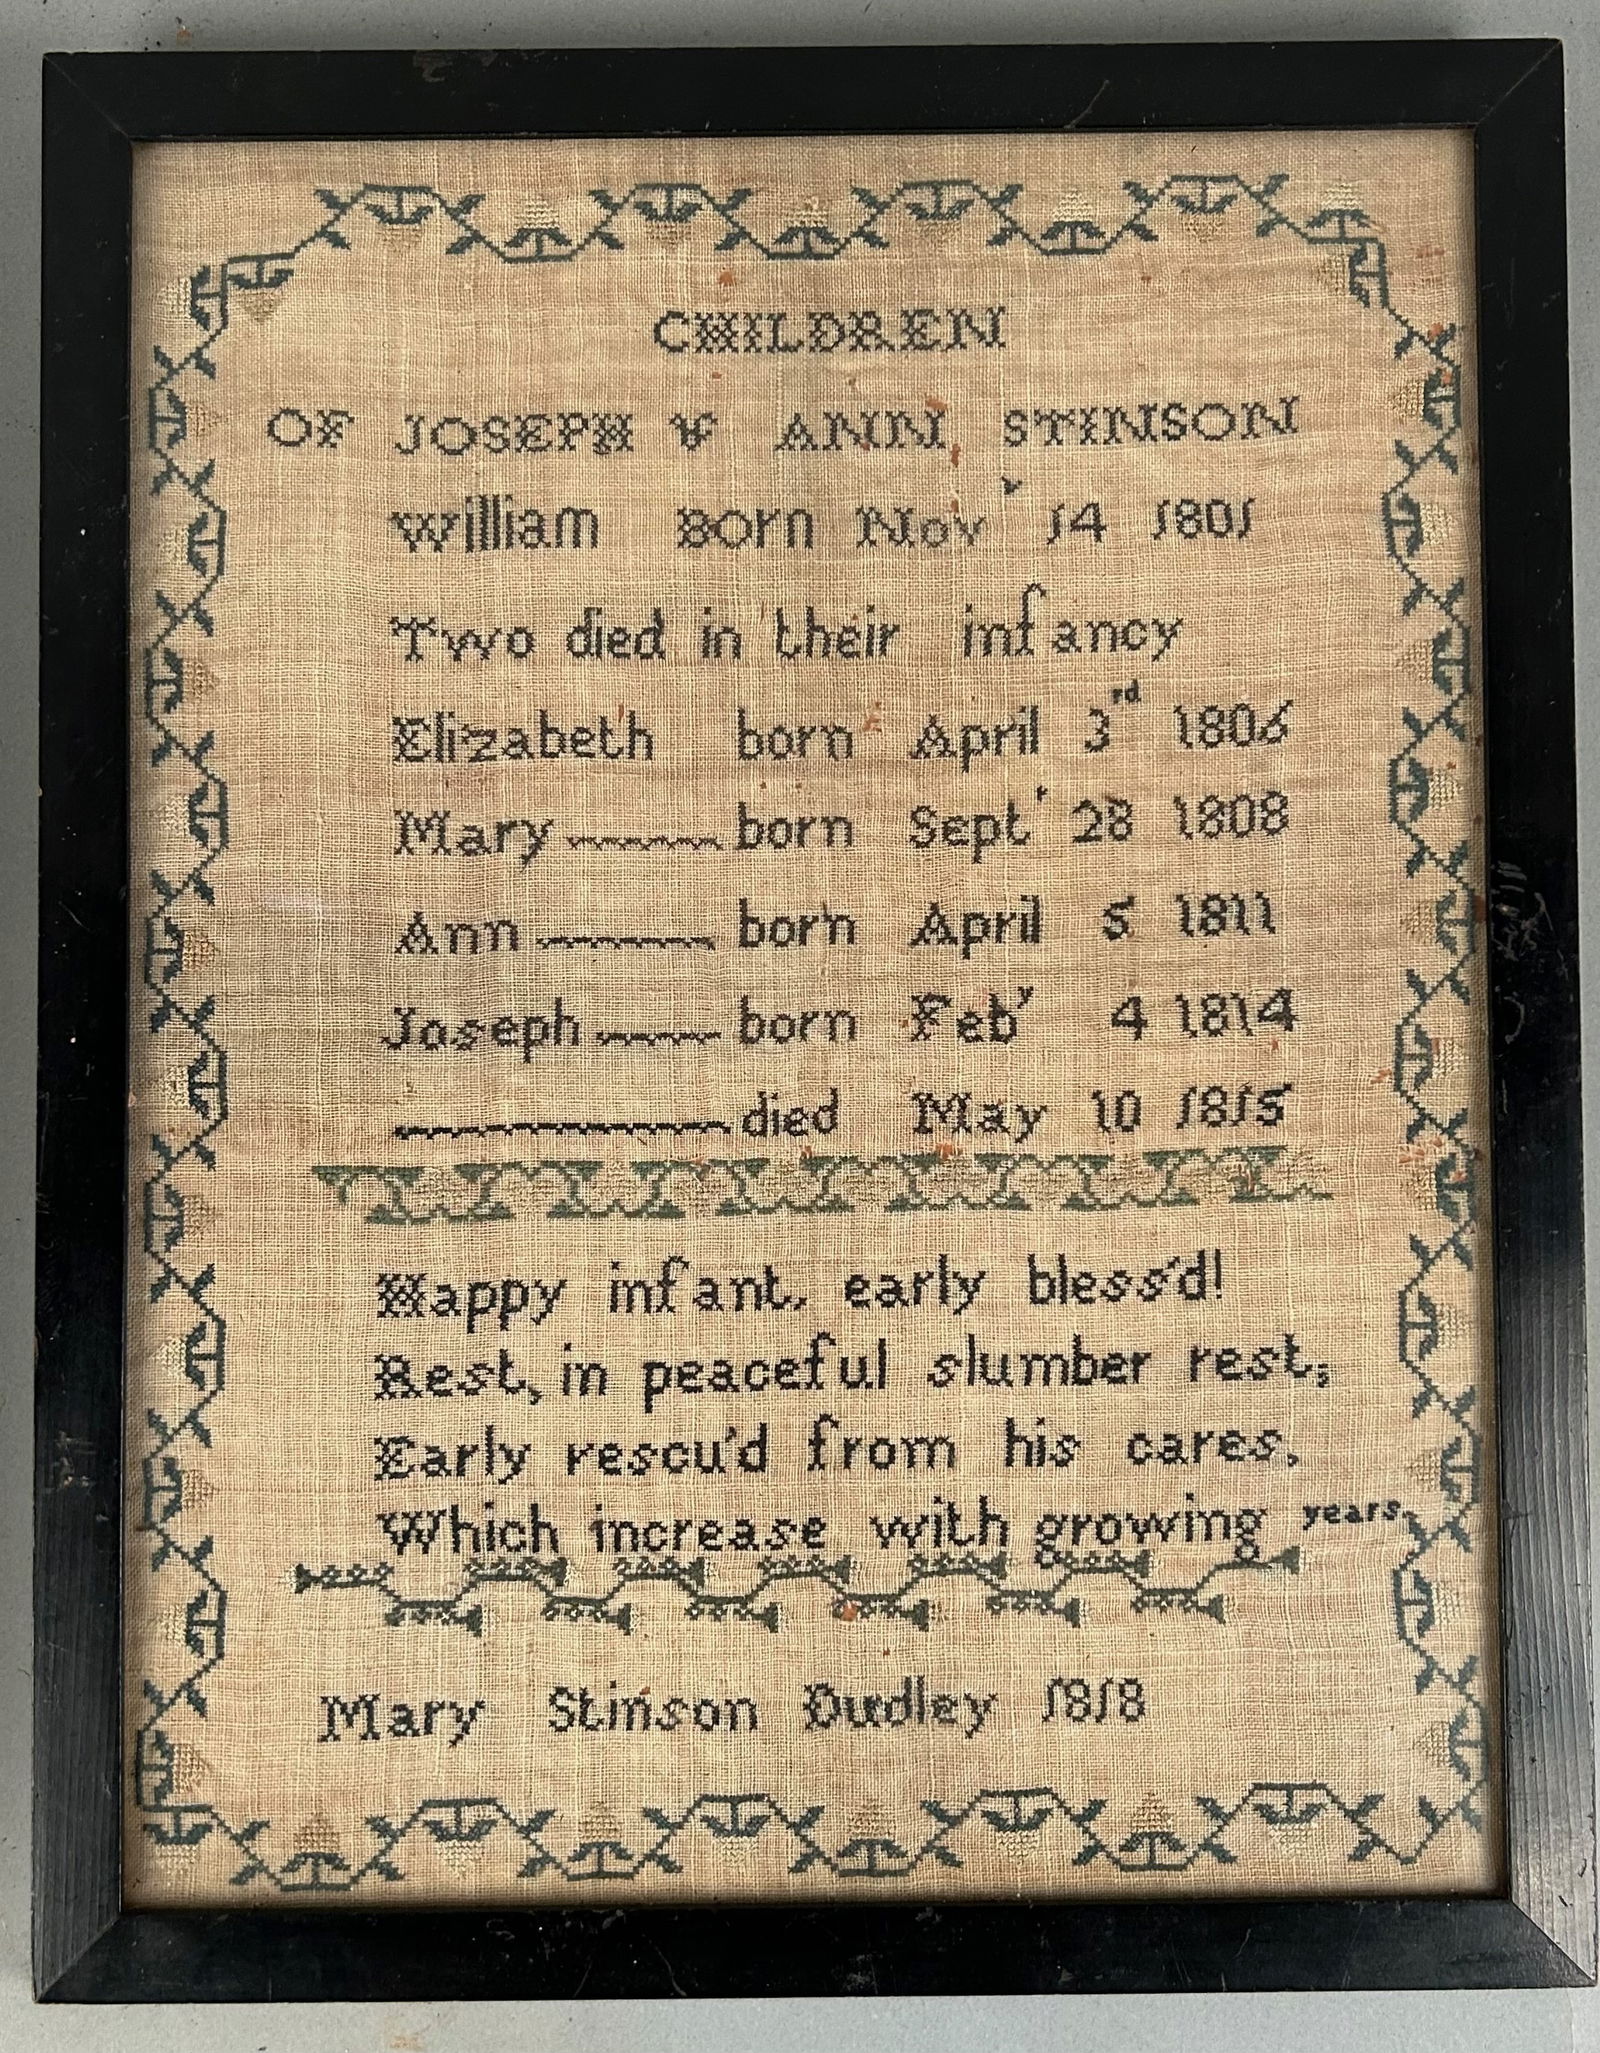 CHILDREN
OF JOSEPH & ANN STINSON
William Born Novʳ 14 1801
Two died in their infancy
Elizabeth born April 3rd 1806
Mary born Sept' 28 1808
Ann born April 5 1811
Joseph born Feb' 4 1814
died May 10 1815
Happy infant, early bless'd!
Rest, in peaceful slumber rest;
Early rescu'd from his cares,
Which increase with growing years.
Mary Stinson Dudley 1818